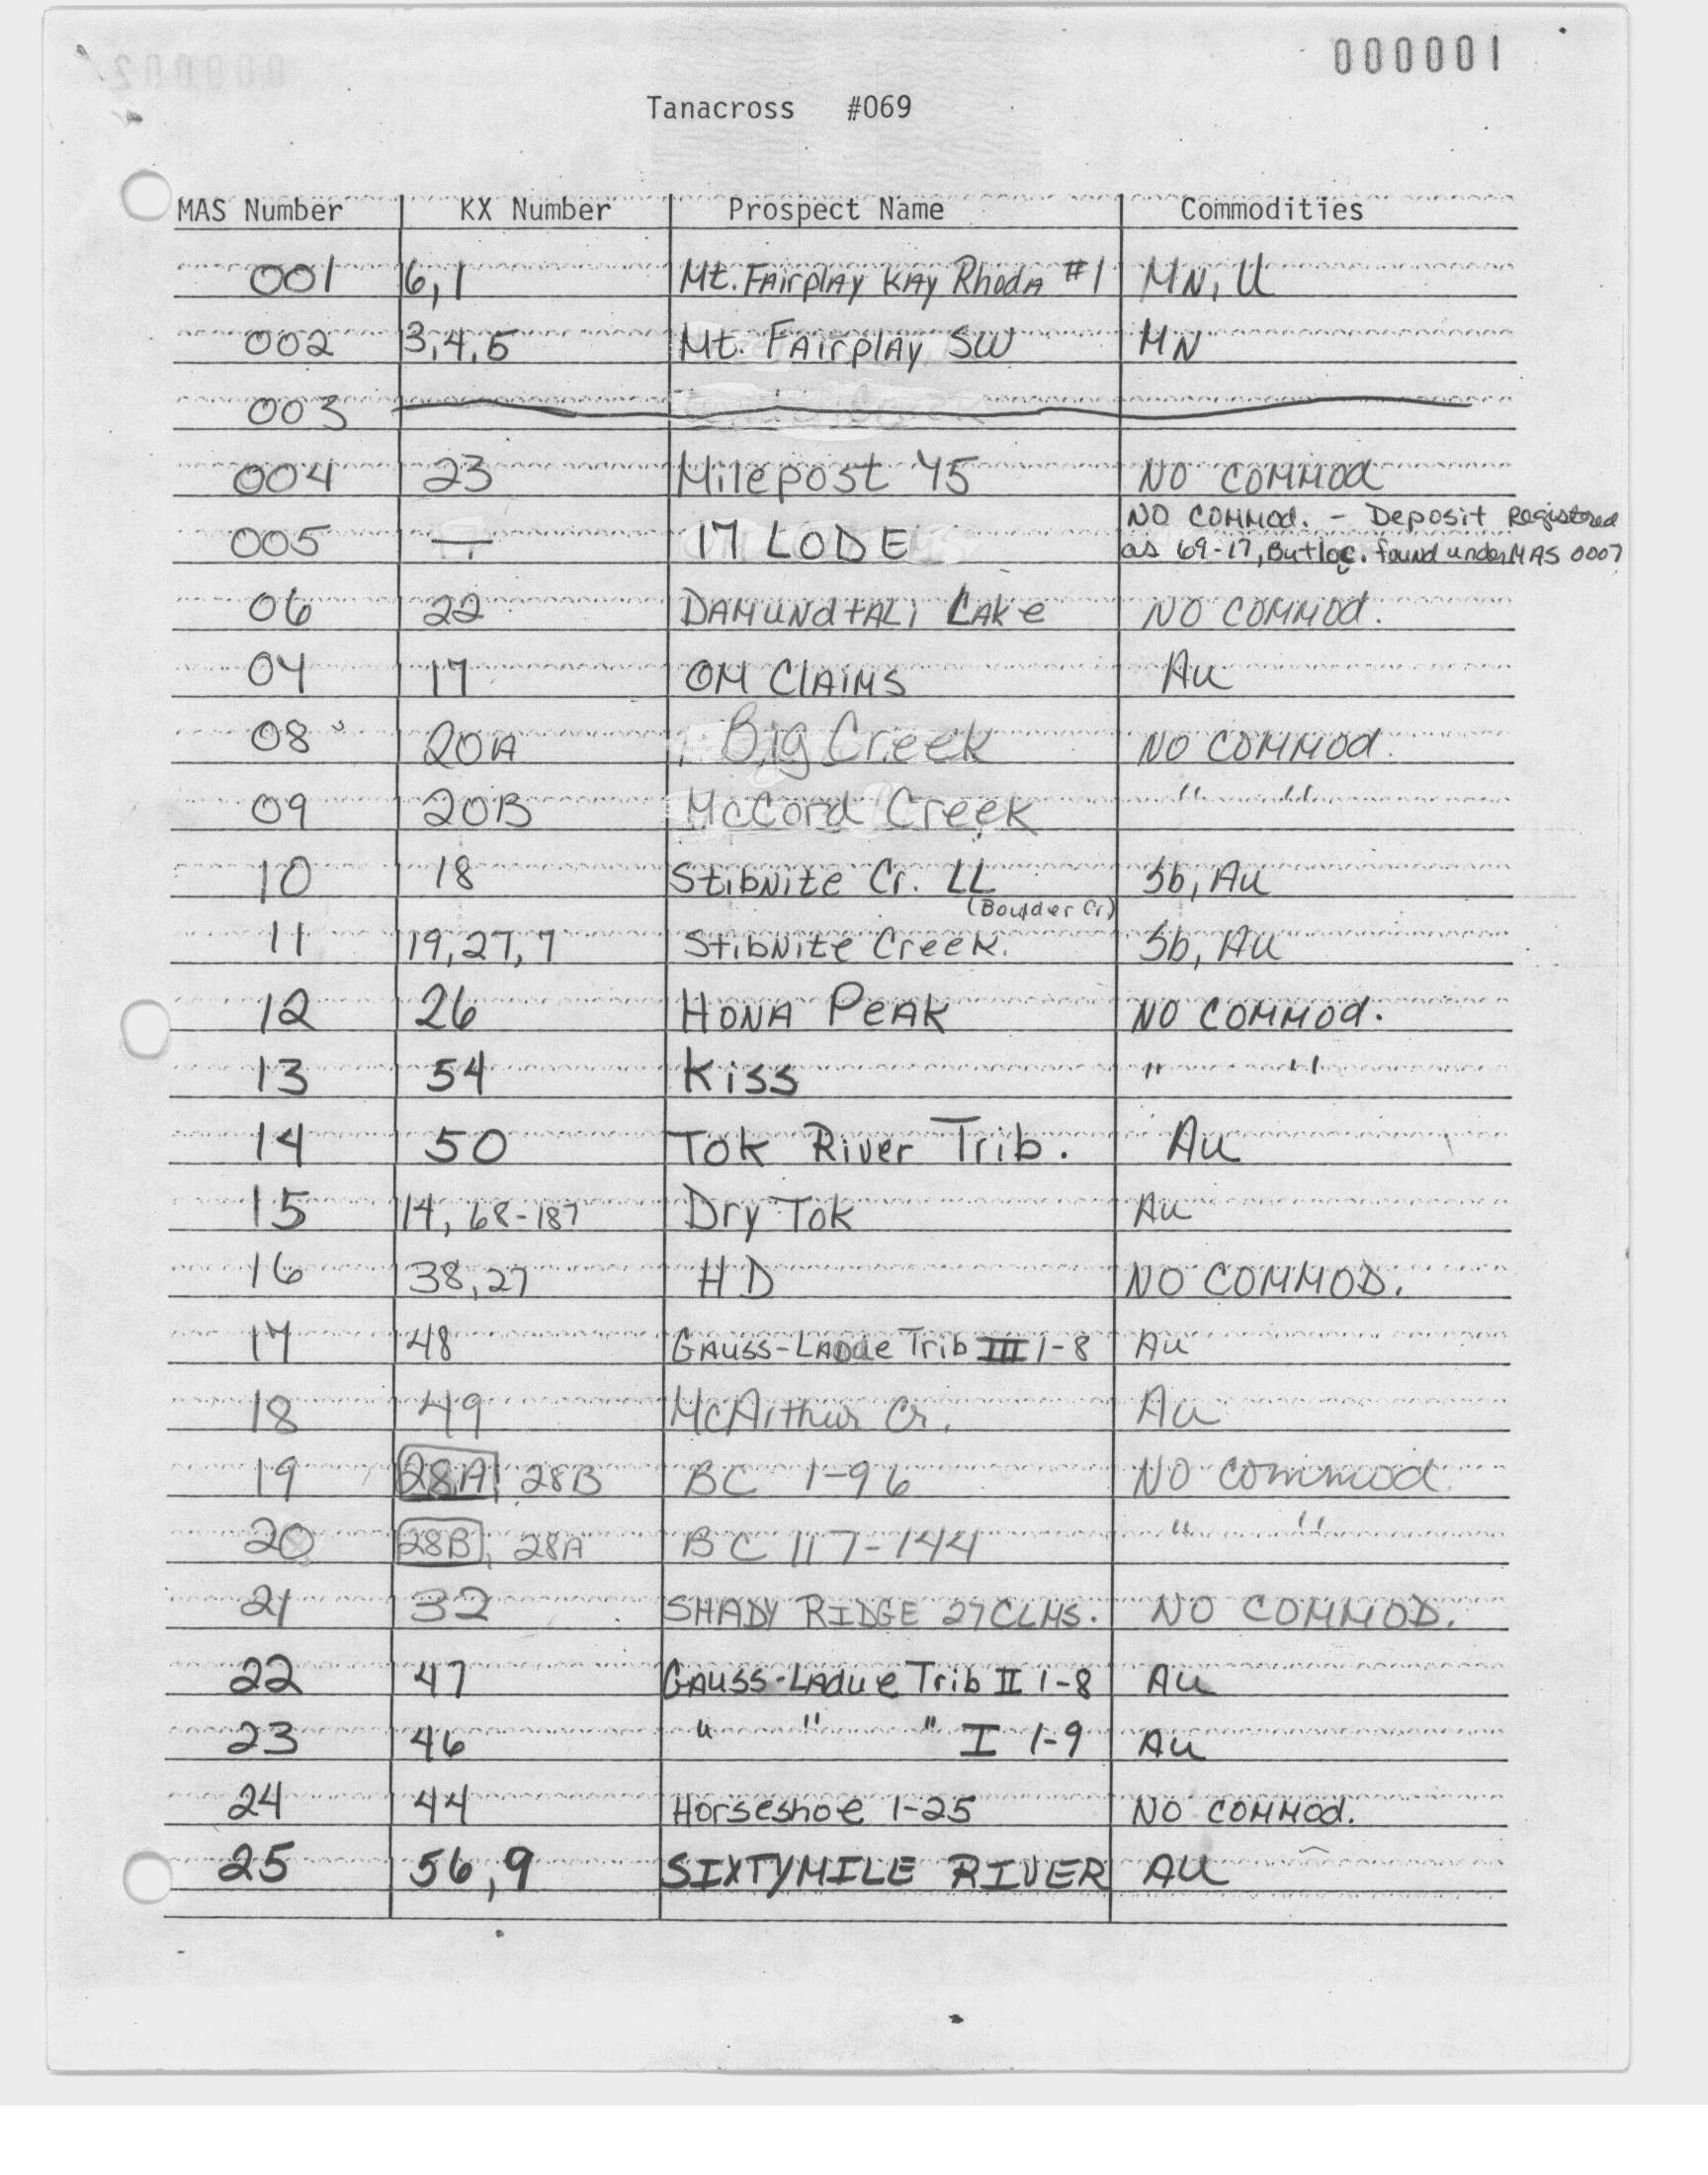 000001
Tanacross #069
MAS Number KX Number Prospect Name Commodities
001 6,1 Mt. FAirplAy KAy RhodA #1 MN, U
002 3,4,5 Mt. FAirplAy SW MN
003
004 23 Milepost 45 NO COMMOd
005 17 LODE NO COMMOd. - Deposit Registered
as 69-17, But loc. found under MAS 0007
06 22 DAMUNdtALi LAke NO COMMOd.
07 17 OM ClAiMS Au
08 20A Big Creek NO COMMOd.
09 20B McCord Creek " "
10 18 StibNite Cr. LL Sb, Au
(Boulder Cr)
11 19,27,7 StibNite Creek. Sb, Au
12 26 HONA PeAk NO COMMOd.
13 54 Kiss " "
14 50 Tok River Trib. Au
15 14, 68-187 Dry Tok Au
16 38,27 HD NO COMMOD.
17 48 GAuss-LAdue Trib III 1-8 Au
18 49 McArthur Cr. Au
19 28A, 28B BC 1-96 NO Commod.
20 28B, 28A BC 117-144 " "
21 32 SHADY RIDGE 27 CLMS. NO COMMOD.
22 47 GAuss-LAdue Trib II 1-8 Au
23 46 " " " I 1-9 Au
24 44 Horseshoe 1-25 NO COMMOd.
25 56,9 SIXTYMILE RIVER AU